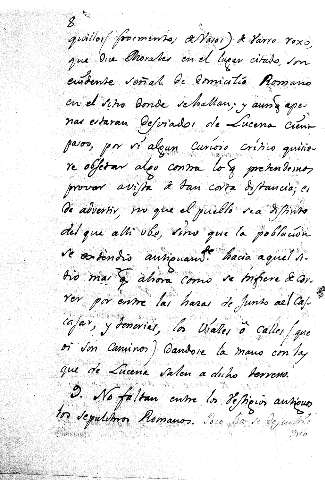 8
quillos (fragmentos, de Vasos) de varro roxo,
que dice Morales en el lugar citado, son
evidente señal de domicilio Romano
en el sitio donde se hallan; y aunq ape-
nas estaran desviados de Lucena cient
pasos, por si algun curioso critico quisie-
re objetar algo contra lo q pretendemos
provar a vista de tan corta distancia; es
de advertir, no que el pueblo sea distinto
del que alli ubo, sino que la poblacion
se estendio antiguamte hacia aquel si-
tio mas q ahora como se infiere de
ver, por entre las hazas de junto al Cas-
cajar, y tenerias, los Viales ô calles (que
oi son caminos) dandose la mano con las
que de Lucena salen a dicho terreno.
9. No faltan entre los Vestigios antiguos
los sepulcros Romanos. Poco ha se